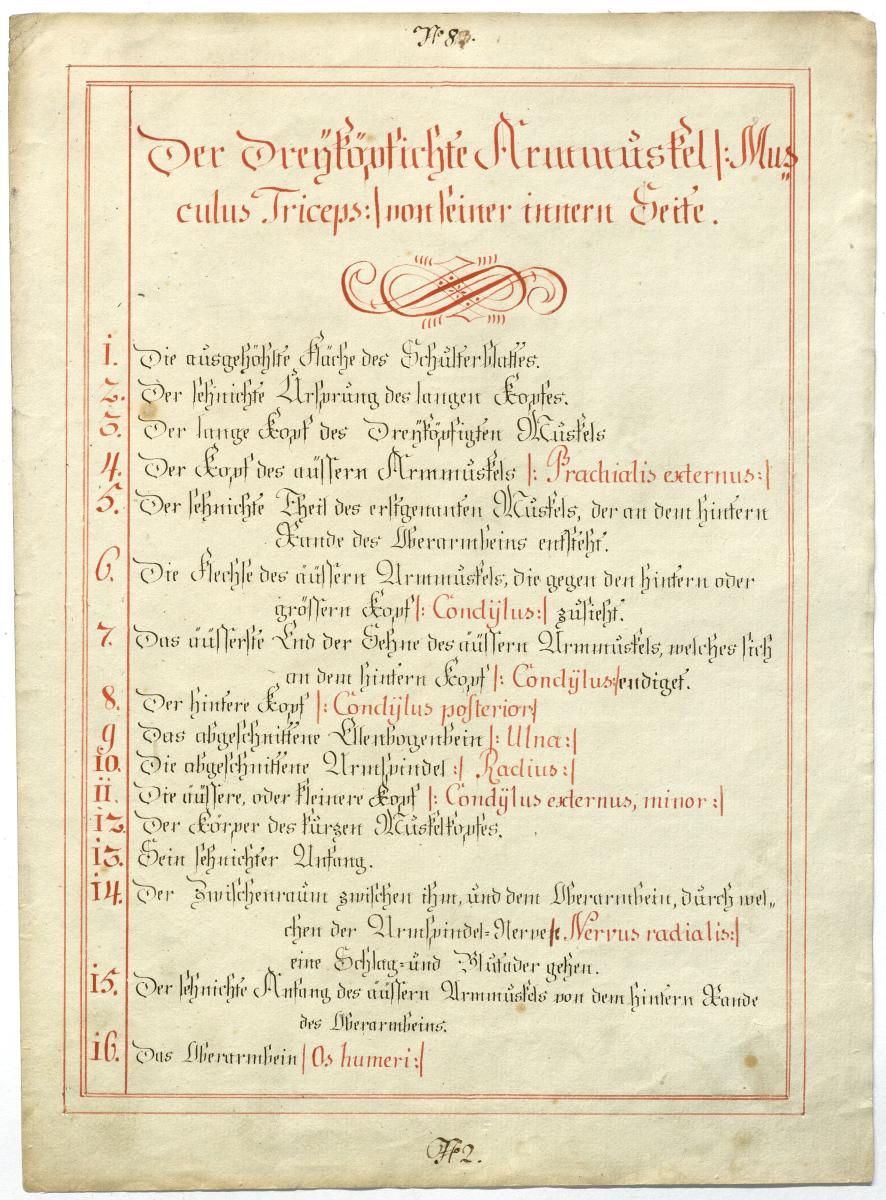 No 83.
Der Dreÿköpfichte Armmuskel |: Mus„
culus Triceps:| von seiner innern Seite.
1. Die ausgehöhlte Fläche des Schulterblattes.
2. Der sehnichte Ursprung des langen Kopfes.
3. Der lange Kopf des Dreÿköpfigten Muskels
4. Der Kopf des äussern Armmuskels |: Brachialis externus:|
5. Der sehnichte Theil des erstgenanten Muskels, der an dem hintern
Rande des Oberarmbeins entsteht.
6. Die Flechse des äüssern Armmuskels, die gegen den hintern oder
grössern Kopf |: Condÿlus:| zusieht.
7. Das äüsserste End der Sehne des äüssern Armmuskels, welches sich
an dem hintern Kopf |: Condÿlus:| endiget.
8. Der hintere Kopf |: Condÿlus posterior|
9 Das abgeschnittene Ellenbogenbein |: Ulna:|
10. Die abgeschnittene Armspindel :| Radius:|
11. Die äüssere, oder kleinere Kopf |: Condÿlus externus, minor:|
12 Der Körper des kurzen Muskelkopfes.
13. Sein sehnichter Anfang.
14. Der Zwischenraum zwischen ihm, und dem Oberarmbein, durch wel„
chen der Armspindel=Nerve |: Nervus radialis:|
eine Schlag= und Blutader gehen.
15. Der sehnichte Anfang des äüssern Armmuskels von dem hintern Rande
des Oberarmbeins.
16. Das Oberarmbein | Os humeri:|
No 2.